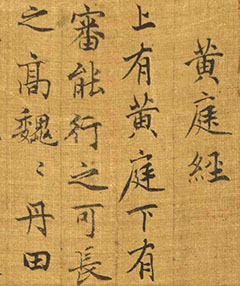 黄庭經
上有黄庭下有
審能行之可長
之高魏〻丹田